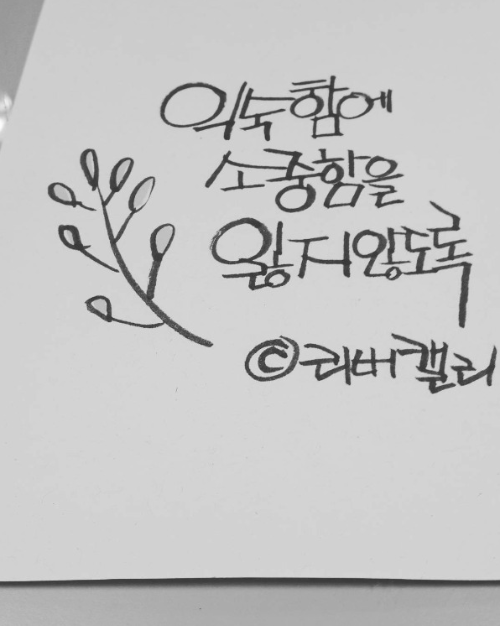 익숙함에
소중함을
잃지않도록
©리버캘리